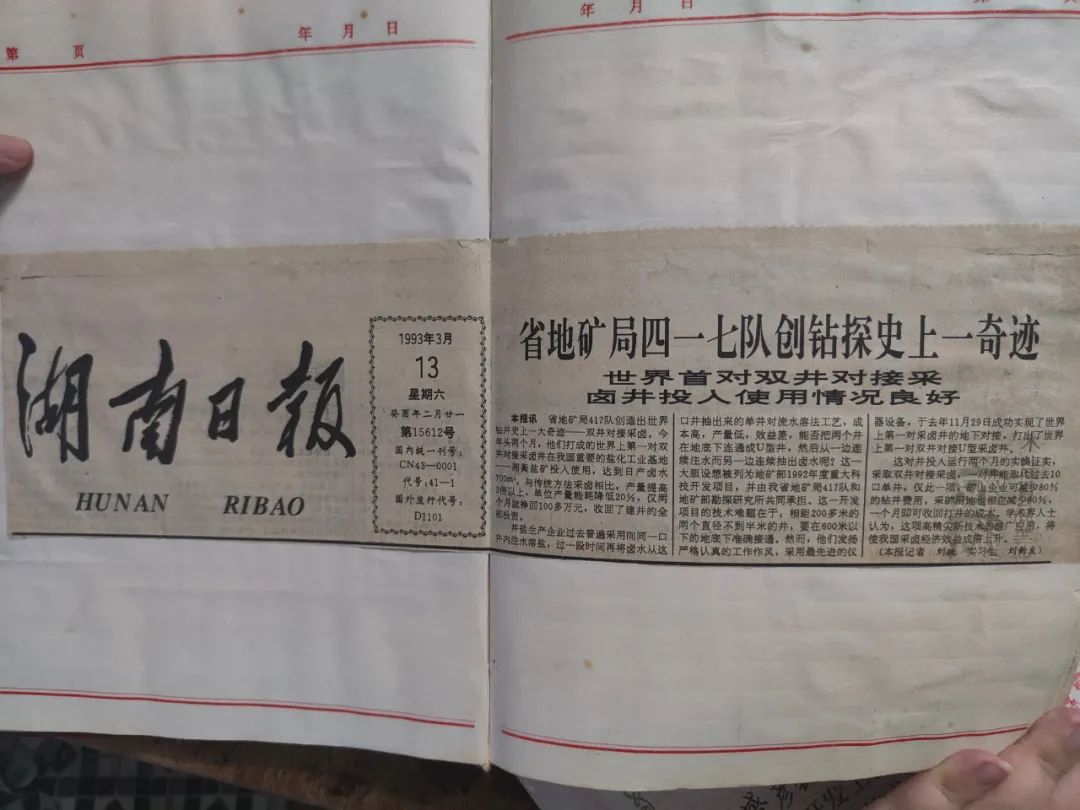 第 页
年 月 日
年 月 日
湖南日报
HUNAN RIBAO
1993年3月
13
星期六
癸酉年二月廿一
第15612号
国内统一刊号:
CN43—0001
代号:41—1
国外发行代号:
D1101
省地矿局四一七队创钻探史上一奇迹
世界首对双井对接采
卤井投入使用情况良好
本报讯 省地矿局417队创造出世界
钻井史上一大奇迹——双井对接采卤。今
年头两个月,他们打成的世界上第一对双
井对接采卤井在我国重要的盐化工业基地
——湘衡盐矿投入使用,达到日产卤水
700m³,与传统方法采卤相比,产量提高
3倍以上,单位产量能耗降低20%,仅两
个月就挣回100多万元,收回了建井的全
部投资。
井盐生产企业过去普遍采用向同一口
井内注水溶盐,过一段时间再将卤水从这
口井抽出来的单井对流水溶法工艺,成
本高,产量低,效益差,能否把两个井
在地底下连通成U型井,然后从一边连
续注水而另一边连续抽出卤水呢?这一
大胆设想被列为地矿部1992年度重大科
技开发项目,并由我省地矿局417队和
地矿部勘探研究所共同承担。这一开发
项目的技术难题在于:相距200多米的
两个直径不到半米的井,要在600米以
下的地底下准确接通。然而,他们发扬
严格认真的工作作风,采用最先进的仪
器设备,于去年11月29日成功实现了世界
上第一对采卤井的地下对接,打出了世界
上第一对双井对接U型采卤井。
这对井投入运行两个月的实践证实,
采取双井对接采卤,一对井能取代过去10
口单井。仅此一项,矿山企业可减少80%
的钻井费用,采矿用地也相应减少80%,
一个月即可收回打井的成本。学术界人士
认为,这项高精尖新技术的推广应用,将
使我国采卤经济效益成倍上升。
(本报记者 刘 实习生 刘新良)